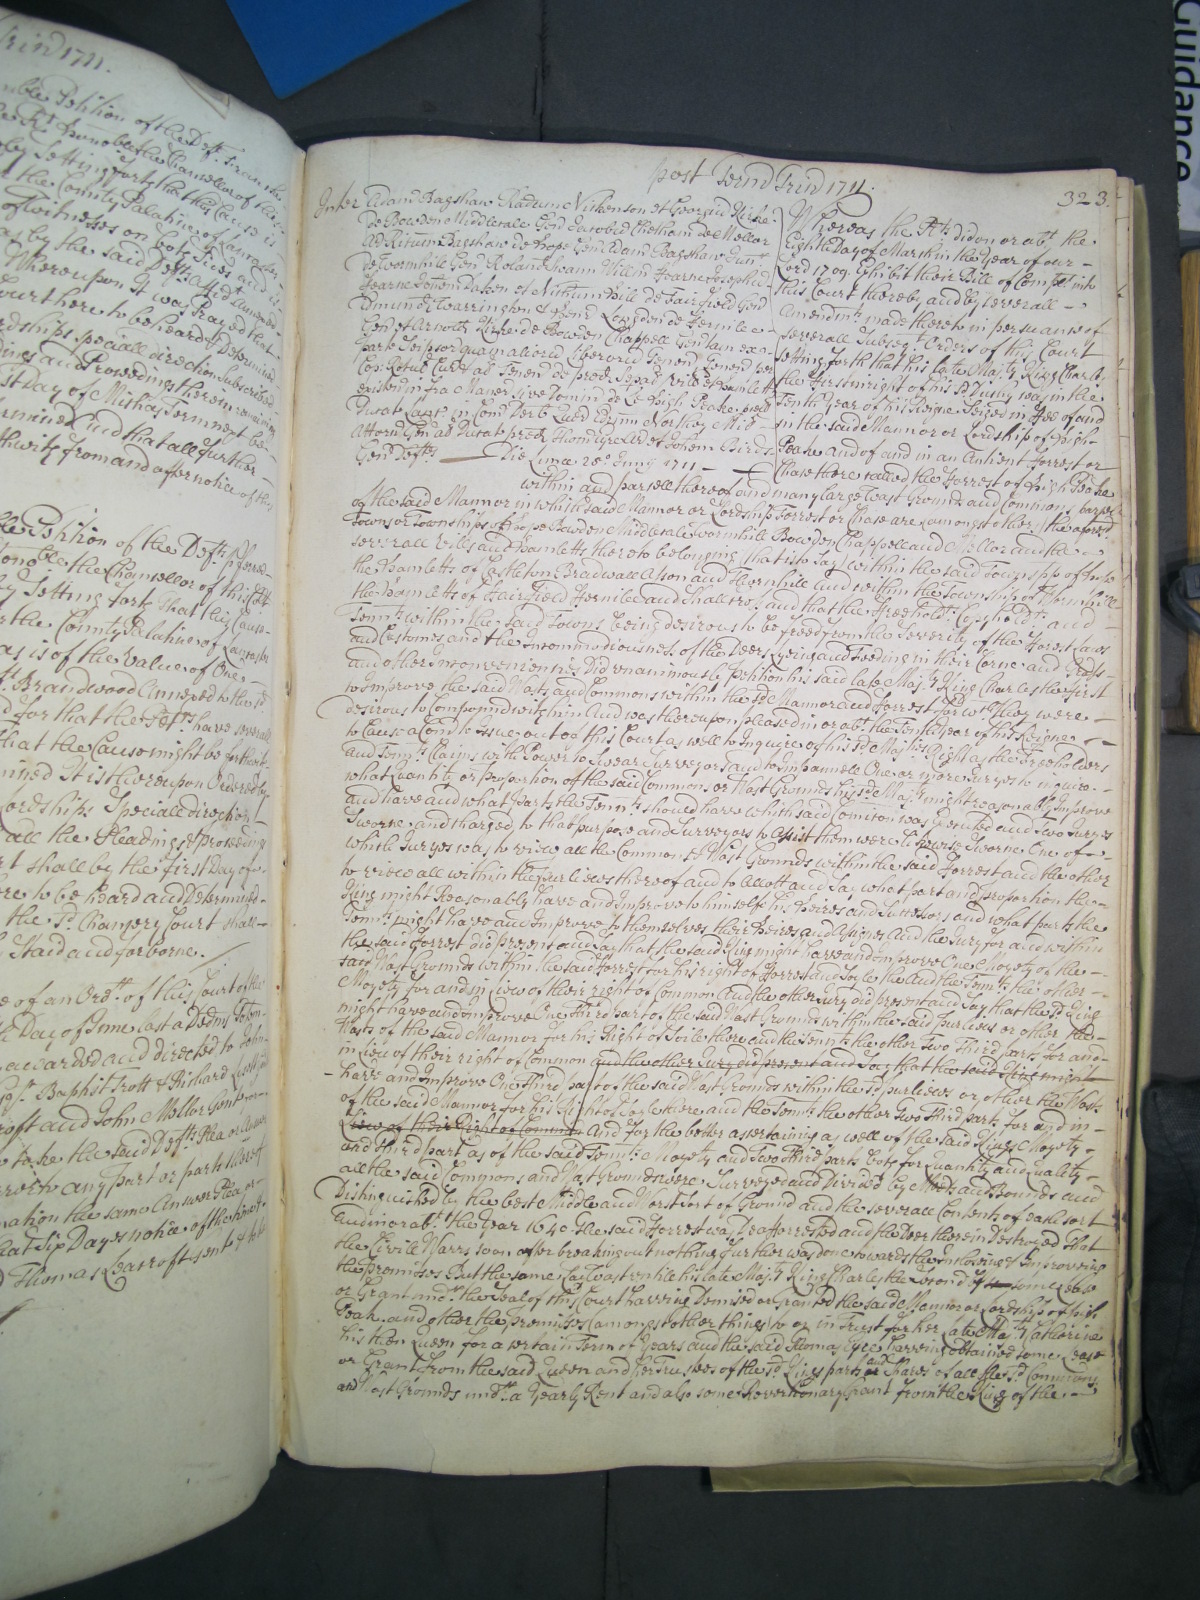 Trin 1711.
mble Petition of the Deft. Fran
by Setting forth that this Cause is
the County Palatine of Lancaster
of witnesses on both sides and is
as by the said Defts. Affid annexed
Whereupon it was Prayed that
Court here to be heard & Determined
rdships speciall direction Subscribed
dings and Proceedings therein
st Day of Michas Terme next be
rmined And that all further
thwith from and after notice of this
ble Petition of the Deft. preferred
onoble the Chancellor of this Court
by Setting forth That this Cause
the County Palatine of Lancaster
as is of the Value of One
Brandwood Annexed to the sd.
d for that the Defts. have severall
that the Cause might be forthwith
mined It is thereupon Ordered by
Lordships Speciall direction
all the Pleadings & proceedings
rt shall by the first Day of
re to be heard and Determined
the sd. Chancery Court shall
Staid and forborne.
e of an Ordr. of this Court of the
Day of June last a Dedms Potem
awarded and directed to John
Baptist Trott & Richard
roft and John Mellor Gent or
to take the said Defts. Plea or Answer
rer to any part or parts thereof
nation the same Answer Plea or
hat Six Dayes notice of the time &
Thomas Learoft sent &
post Termd Trind 1711.
323.
Inter Adam Bagshaw Radum Nickenson et Georgiu Kirke
de Bowden Middlecale Gen Jacobu Chetham de Mellor
Ad Ricum Bagshaw de Hope Gen Adam Bagshaw Junr.
de Wormhill Gen Roland Swann Willm Hearne Josephu
Hearne Johem Oaken et Nichum Hill de Fairfield Gen
Edmund Warrington & Longsdon de Fernilee
Gen et Arnold Kirke de Bowden Chappell Gen tam ex
parte Seipsor quam aliorum liberorum Tenen Tenen per
Cop Rotul Cur et al Tenen de pred Separ Vill et Hamlett
existen infra Maner sive Domin de le High Peake pred
Ducat Lanc in Com Derb Quer Edrum Northey Mil
Attorn Gen al Ducat pred Thom Eyre Ar et Johem Bird
Gen Defts. Die Lunae 25o Junij 1711
Whereas the Plts. did on or abt. the
Eight Day of March in the year of our
Lord 1709 Exhibit their Bill of Complt into
this Court thereby and by severall
Amendmts. made thereto in persuance of
severall Subseqt. Orders of this Court
setting forth that his late Majty. King Charles
the First in right of his sd. Duchy was in the
Tenth year of his Reigne Seized in Fee of and
in the said Mannor or Lordship of High
Peake and of and in an Antient Forrest or
Chase there called the Forrest of High Peake
within and parcell thereof and many large Wast Grounds and Commons parcell
of the said Mannor in which said Mannor or Lordship Forrest or Chase are (amongst others) the aforesd.
Towns or Townships of Hope Bowden Middlecale Wormhill Bowden Chappell and Mellor and the
severall Vills and Hamletts thereto belonging (that is to say) within the said Townspp of Hope
the Hamletts of Castleton Bradwall Aston and Thornhill And within the Township of Wormhill
the Hamletts of Fairfield Fernilee and Shallcross and that the Freeholdrs. Copyholdrs. and
Tennts. within the said Towns being desirous to be freed from the Severity of the Forest Laws
and Customes and the Incommodiousness of the Deers lyeing and Feeding in their Corne and Grass
and other Inconveniencies Did unanimously Petition his said late Majty. King Charles the First
to Improve the said Wasts and Commons within the sd. Mannor and Forrest for wch. they were
desirous to Compound with him And was thereupon pleased in or abt. the Tenth year of his Reigne
to Cause a Comn to issue out of this Court as well to Inquire of his sd. Majties Right as the Freeholders
and Tennts. Claims with Power to Swear Surveyors and to Impannell One or more Jurys to inquire
what Quantity or Proportion of the said Commons or Wast Grounds his sd. Majty. might reasonably Improve
and have and what Parts the Tennts. should have which said Comicon was Executed and two Jurys
Sworne and charged to that purpose and Surveyors to Assist them were likewise Sworne One of
which Jurys was to view all the Commons & Wast Grounds within the said Forrest and the other
to view all within the Purliews thereof and to Allott and Say what part and Proportion the
King might Reasonably have and Improve to himself his Heires and Successors and what parts the
Tennts. might have and Improve to themselves their Heires and Assignes And the Jury for and within
the said Forrest did present and say that the said King might have and Improve One Moyety of the
said Wast Grounds within the said Forrest for his right of Forrest and Soyle there And the Tennts. the other
Moyety for and in Liew of their right of Common And the other Jury did present and Say that the sd. King
might have and Improve One Third part of the said Wast Grounds within the said Purliews or other the
Wasts of the said Mannor for his Right of Soile there and the Tennts. the other Two Third parts for and
in Liew of their right of Common and the other Jury did present and Say that the said King might
have and Improve One Third part of the said Wast Grounds within the sd. purliews or other the Wasts
of the said Mannor for his Right of Soyle there and the Tennts. the other two third parts for and in
Liew of their Right of Common And for the better ascertaining as well of the said Kings Moyety
and third part as of the said Tennts. Moyety and two third parts both for Quantity and Quality
all the said Commons and Wast Grounds were Surveyed and Divided by Meets and Bounds and
Distinguished by the best Middle and Worst sort of Ground and the severall Contents of each sort
And in or abt. the Year 1640 the said Forrest was Deafforrested and the Deer therein Destroyed That
the Civill Warrs soon after breaking out nothing further was done towards the Inclosing & Improving
the premisses But the same lay Wast untile his late Majty. King Charles the Second by some Lease
or Grant undr. the Seal of this Court having Demised or Granted the said Mannor or Lordship of High
Peak and other the Premisses (amongst other things) to or in Trust for her late Majty Catherine
his then Queen for a certain Term of years and the said Thomas Eyre having obtained some Lease
or Grant from the said Queen and her Trustees of the sd. Kings parts and Shares of all the sd. Commons
and Wast Grounds undr. a Yearly Rent and also some Reversionary Grant from the King of the
Guidance